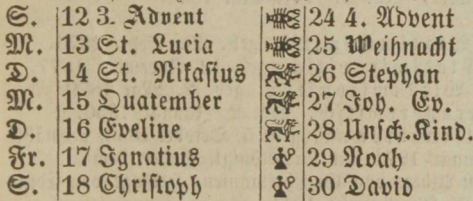 S. 12 3. Advent 24 4. Advent
M. 13 St. Lucia 25 Weihnacht
D. 14 St. Nikasius 26 Stephan
M. 15 Quatember 27 Joh. Ev.
D. 16 Eveline 28 Unsch. Kind.
Fr. 17 Ignatius 29 Noah
S. 18 Christoph 30 David